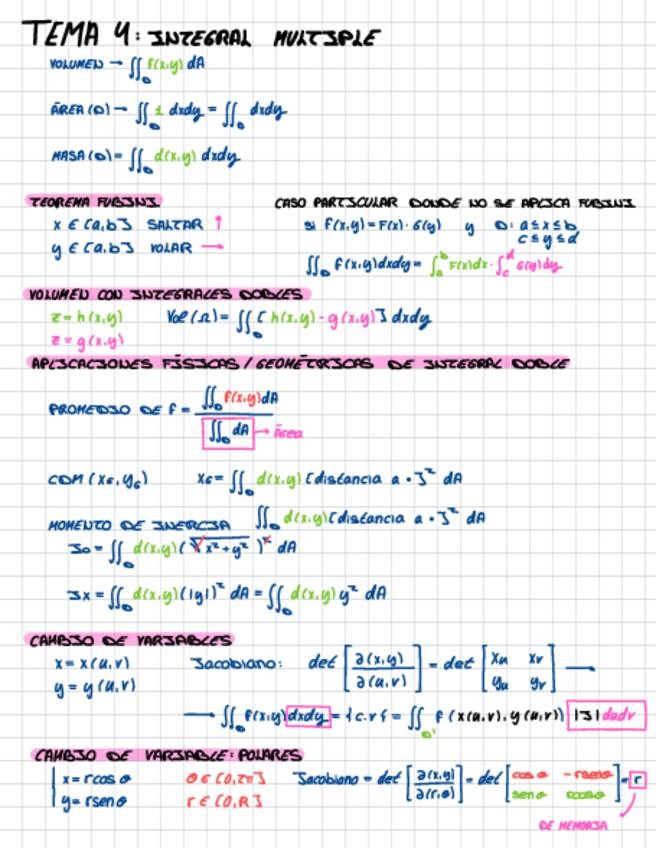 TEMA 4: INTEGRAL MULTIPLE
VOLUMEN → ∬_D f(x,y) dA
ÁREA (D) → ∬_D 1 dxdy = ∬_D dxdy
MASA (D) = ∬_D d(x,y) dxdy
TEOREMA FUBINI
x ∈ [a,b] SALTAR ↑
y ∈ [a,b] VOLAR →
CASO PARTICULAR DONDE NO SE APLICA FUBINI
si f(x,y) = F(x) · G(y) y D: a ≤ x ≤ b
c ≤ y ≤ d
∬_D f(x,y) dxdy = ∫_a^b F(x) dx · ∫_c^d G(y) dy
VOLUMEN CON INTEGRALES DOBLES
z = h(x,y) Vol (Ω) = ∬_D [h(x,y) - g(x,y)] dxdy
z = g(x,y)
APLICACIONES FÍSICAS / GEOMÉTRICAS DE INTEGRAL DOBLE
PROMEDIO DE f = ∬_D f(x,y) dA / ∬_D dA → Área
CDM (x_G, y_G) x_G = ∬_D d(x,y) [distancia a ·]² dA
MOMENTO DE INERCIA ∬_D d(x,y) [distancia a ·]² dA
I_0 = ∬_D d(x,y) (√x² + y²)² dA
I_x = ∬_D d(x,y) (|y|)² dA = ∬_D d(x,y) y² dA
CAMBIO DE VARIABLES
x = x(u,v) Jacobiano: det [∂(x,y) / ∂(u,v)] = det [x_u x_v / y_u y_v] →
y = y(u,v)
→ ∬_D f(x,y) dxdy = {c.v} = ∬_D' f (x(u,v), y(u,v)) |J| dudv
CAMBIO DE VARIABLE: POLARES
x = rcos θ θ ∈ [0,2π] Jacobiano = det [∂(x,y) / ∂(r,θ)] = det [cos θ -rsenθ / senθ rcosθ] = r
y = rsenθ r ∈ [0,R]
DE MEMORIA